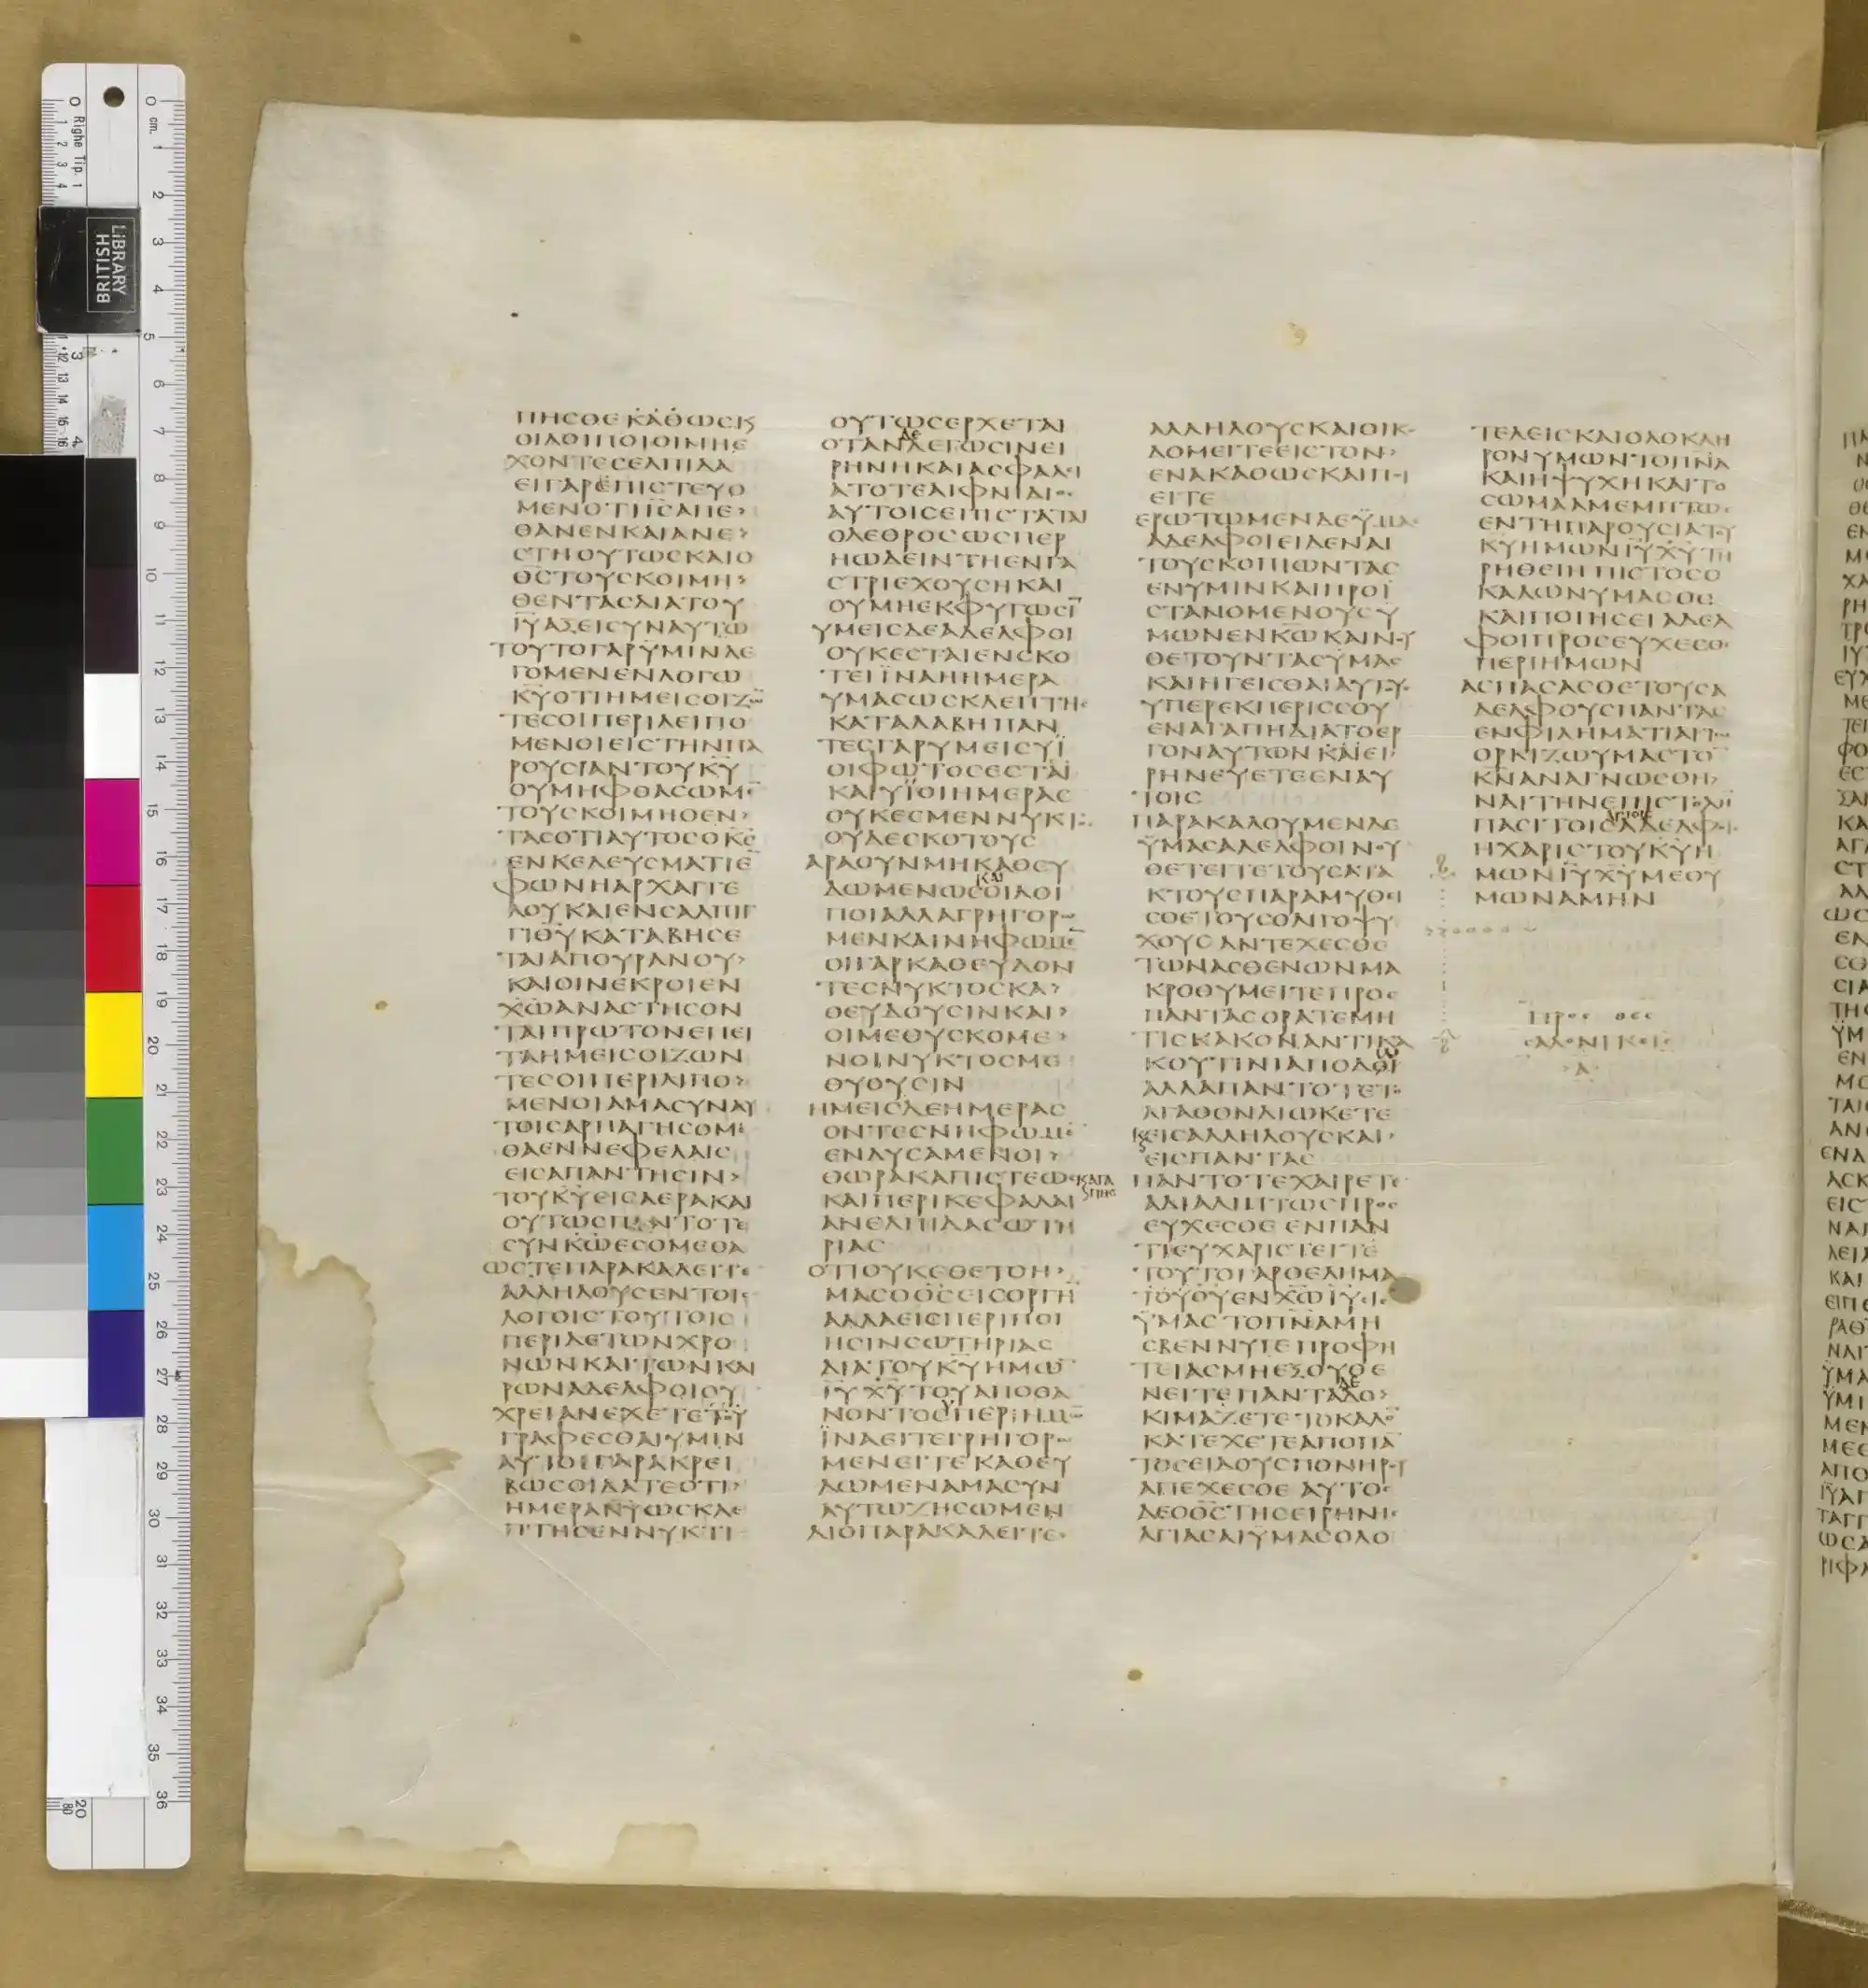 ΠΗCΘΕ ΚΑΘΩCΚϚ
ΟΙΛΟΙΠΟΙΟΙΜΗΕ
ΧΟΝΤΕCΕΛΠΙΔΑ
ΕΙΓΑΡΕΠΙCΤΕΥΟ
ΜΕΝΟΤΙΙ̅C̅ΑΠΕ›
ΘΑΝΕΝΚΑΙΑΝΕ›
CΤΗΟΥΤΩCΚΑΙΟ
Θ̅C̅ΤΟΥCΚΟΙΜΗ›
ΘΕΝΤΑCΔΙΑΤΟΥ
Ι̅Υ̅ΑΞΕΙCΥΝΑΥΤΩ
ΤΟΥΤΟΓΑΡΥΜΙΝΛΕ
ΓΟΜΕΝΕΝΛΟΓΩ
Κ̅Υ̅ΟΤΙΗΜΕΙCΟΙΖΩ̅
ΤΕCΟΙΠΕΡΙΛΕΙΠΟ
ΜΕΝΟΙΕΙCΤΗΝΠΑ
ΡΟΥCΙΑΝΤΟΥΚ̅Υ̅
ΟΥΜΗΦΘΑCΩΜΕ
ΤΟΥCΚΟΙΜΗΘΕΝ›
ΤΑCΟΤΙΑΥΤΟCΟΚ̅C̅
ΕΝΚΕΛΕΥCΜΑΤΙΕ̅
ΦΩΝΗΑΡΧΑΓΓΕ
ΛΟΥΚΑΙΕΝCΑΛΠΙΓ
ΓΙΘ̅Υ̅ΚΑΤΑΒΗCΕ
ΤΑΙΑΠΟΥΡΑΝΟΥ›
ΚΑΙΟΙΝΕΚΡΟΙΕΝ
Χ̅Ω̅ΑΝΑCΤΗCΟΝ
ΤΑΙΠΡΩΤΟΝΕΠΕΙ
ΤΑΗΜΕΙCΟΙΖΩΝ
ΤΕCΟΙΠΕΡΙΛΙΠΟ›
ΜΕΝΟΙΑΜΑCΥΝΑΥ
ΤΟΙCΑΡΠΑΓΗCΟΜΕ
ΘΑΕΝΝΕΦΕΛΑΙC
ΕΙCΑΠΑΝΤΗCΙΝ›
ΤΟΥΚ̅Υ̅ΕΙCΑΕΡΑΚΑΙ
ΟΥΤΩCΠΑΝΤΟΤΕ
CΥΝΚ̅Ω̅ΕCΟΜΕΘΑ
ΩCΤΕΠΑΡΑΚΑΛΕΙΤΕ
ΑΛΛΗΛΟΥCΕΝΤΟΙC
ΛΟΓΟΙCΤΟΥΤΟΙC
ΠΕΡΙΔΕΤΩΝΧΡΟ
ΝΩΝΚΑΙΤΩΝΚΑΙ
ΡΩΝΑΔΕΛΦΟΙΟΥ
ΧΡΕΙΑΝΕΧΕΤΕΤΟΥ
ΓΡΑΦΕCΘΑΙΥΜΙΝ
ΑΥΤΟΙΓΑΡΑΚΡΕΙ
ΒΩCΟΙΔΑΤΕΟΤΙ›
ΗΜΕΡΑΚ̅Υ̅ΩCΚΛΕ
ΠΤΗCΕΝΝΥΚΤΙ
ΟΥΤΩCΕΡΧΕΤΑΙ
ΔΕ
ΟΤΑΝΛΕΓΩCΙΝΕΙ
ΡΗΝΗΚΑΙΑCΦΑΛΙ
ΑΤΟΤΕΑΙΦΝΙΔΙΟC
ΑΥΤΟΙCΕΠΙCΤΑΤΑΙ
ΟΛΕΘΡΟCΩCΠΕΡ
ΗΩΔΕΙΝΤΗΕΝΓΑ
CΤΡΙΕΧΟΥCΗΚΑΙ
ΟΥΜΗΕΚΦΥΓΩCΙ̅
ΥΜΕΙCΔΕΑΔΕΛΦΟΙ
ΟΥΚΕCΤΑΙΕΝCΚΟ
ΤΕΙΪΝΑΗΗΜΕΡΑ
ΥΜΑCΩCΚΛΕΠΤΗC
ΚΑΤΑΛΑΒΗΠΑΝ
ΤΕCΓΑΡΥΜΕΙCΥΪ
ΟΙΦΩΤΟCΕCΤΑΙ
ΚΑΙΥΪΟΙΗΜΕΡΑC
ΟΥΚΕCΜΕΝΝΥΚΤΟC
ΟΥΔΕCΚΟΤΟΥC
ΑΡΑΟΥΝΜΗΚΑΘΕΥ
ΚΑΙ
ΔΩΜΕΝΩCΟΙΛΟΙ
ΠΟΙΑΛΛΑΓΡΗΓΟΡΩ
ΜΕΝΚΑΙΝΗΦΩΜΕ̅
ΟΙΓΑΡΚΑΘΕΥΔΟΝ
ΤΕCΝΥΚΤΟCΚΑ›
ΘΕΥΔΟΥCΙΝΚΑΙ›
ΟΙΜΕΘΥCΚΟΜΕ›
ΝΟΙΝΥΚΤΟCΜΕ
ΘΥΟΥCΙΝ
ΗΜΕΙCΔΕΗΜΕΡΑC
ΟΝΤΕCΝΗΦΩΜΕ̅
ΕΝΔΥCΑΜΕΝΟΙ›
ΘΩΡΑΚΑΠΙCΤΕΩC
ΚΑΓΑ
ΠΗC
ΚΑΙΠΕΡΙΚΕΦΑΛΑΙ
ΑΝΕΛΠΙΔΑCΩΤΗ
ΡΙΑC
ΟΤΙΟΥΚΕΘΕΤΟΗ›
ΜΑCΟΘ̅C̅ΕΙCΟΡΓΗ̅
ΑΛΛΑΕΙCΠΕΡΙΠΟΙ
ΗCΙΝCΩΤΗΡΙΑC
ΔΙΑΤΟΥΚ̅Υ̅ΗΜΩ̅
Ι̅Υ̅Χ̅Υ̅ΤΟΥΑΠΟΘΑ
Υ
ΝΟΝΤΟCΠΕΡΙΗΜΩ̅
ΪΝΑΕΙΤΕΓΡΗΓΟΡΩ
ΜΕΝΕΙΤΕΚΑΘΕΥ
ΔΩΜΕΝΑΜΑCΥΝ
ΑΥΤΩΖΗCΩΜΕΝ
ΔΙΟΠΑΡΑΚΑΛΕΙΤΕ
ΑΛΛΗΛΟΥCΚΑΙΟΙΚΟ
ΔΟΜΕΙΤΕΕΙCΤΟΝ›
ΕΝΑΚΑΘΩCΚΑΙΠΟΙ
ΕΙΤΕ
ΕΡΩΤΩΜΕΝΔΕΫΜΑC
ΑΔΕΛΦΟΙΕΙΔΕΝΑΙ
ΤΟΥCΚΟΠΙΩΝΤΑC
ΕΝΥΜΙΝΚΑΙΠΡΟΪ
CΤΑΝΟΜΕΝΟΥCΫ
ΜΩΝΕΝΚ̅Ω̅ΚΑΙΝΟΥ
ΘΕΤΟΥΝΤΑCΥΜΑC
ΚΑΙΗΓΕΙCΘΑΙΑΥΤΟΥC
ΥΠΕΡΕΚΠΕΡΙCCΟΥ
ΕΝΑΓΑΠΗΔΙΑΤΟΕΡ
ΓΟΝΑΥΤΩΝΚΑΙΕΙ›
ΡΗΝΕΥΕΤΕΕΝΑΥ
ΤΟΙC
ΠΑΡΑΚΑΛΟΥΜΕΝΔΕ
ΫΜΑCΑΔΕΛΦΟΙΝΟΥ
ΘΕΤΕΙΤΕΤΟΥCΑΤΑ
ΚΤΟΥCΠΑΡΑΜΥΘΕΙ
CΘΕΤΟΥCΟΛΙΓΟΨΥ
ΧΟΥCΑΝΤΕΧΕCΘΕ
ΤΩΝΑCΘΕΝΩΝΜΑ
ΚΡΟΘΥΜΕΙΤΕΠΡΟC
ΠΑΝΤΑCΟΡΑΤΕΜΗ
ΤΙCΚΑΚΟΝΑΝΤΙΚΑ
Ω
ΚΟΥΤΙΝΙΑΠΟΔΟΙ
ΑΛΛΑΠΑΝΤΟΤΕΤΟ
ΑΓΑΘΟΝΔΙΩΚΕΤΕ
ΚϚΕΙCΑΛΛΗΛΟΥCΚΑΙ›
ΕΙCΠΑΝΤΑC
ΠΑΝΤΟΤΕΧΑΙΡΕΤΕ
ΑΔΙΑΛΙΠΤΩCΠΡΟC
ΕΥΧΕCΘΕΕΝΠΑΝ
ΤΙΕΥΧΑΡΙCΤΕΙΤΕ
ΤΟΥΤΟΓΑΡΘΕΛΗΜΑ
ΤΟΥΘ̅Υ̅ΕΝΧ̅Ω̅Ι̅Υ̅ΕΙC
ΫΜΑCΤΟΠ̅Ν̅Α̅ΜΗ
CΒΕΝΝΥΤΕΠΡΟΦΗ
ΤΕΙΑCΜΗΕΞΟΥΘΕ
ΔΕ
ΝΕΙΤΕΠΑΝΤΑΔΟ›
ΚΙΜΑΖΕΤΕΤΟΚΑΛΟ̅
ΚΑΤΕΧΕΤΕΑΠΟΠΑ
ΤΟCΕΙΔΟΥCΠΟΝΗΡΟΥ
ΑΠΕΧΕCΘΕΑΥΤΟC
ΔΕΟΘ̅C̅ΤΗCΕΙΡΗΝΗC
ΑΓΙΑCΑΙΫΜΑCΟΛΟ
ΤΕΛΕΙCΚΑΙΟΛΟΚΛΗ
ΡΟΝΥΜΩΝΤΟΠ̅Ν̅Α̅
ΚΑΙΗΨΥΧΗΚΑΙΤΟ
CΩΜΑΑΜΕΜΠΤΩC
ΕΝΤΗΠΑΡΟΥCΙΑΤΟΥ
Κ̅Υ̅ΗΜΩΝΙ̅Υ̅Χ̅Υ̅ΤΗ
ΡΗΘΕΙΗΠΙCΤΟCΟ
ΚΑΛΩΝΥΜΑCΟC
ΚΑΙΠΟΙΗCΕΙΑΔΕΛ
ΦΟΙΠΡΟCΕΥΧΕCΘΕ
ΠΕΡΙΗΜΩΝ
ΑCΠΑCΑCΘΕΤΟΥCΑ
ΔΕΛΦΟΥCΠΑΝΤΑC
ΕΝΦΙΛΗΜΑΤΙΑΓΙΩ
ΟΡΚΙΖΩΥΜΑCΤΟ̅
Κ̅Ν̅ΑΝΑΓΝΩCΘΗ›
ΝΑΙΤΗΝΕΠΙCΤΟΛΗ̅
ΑΓΙΟΙC
ΠΑCΙΤΟΙCΑΔΕΛΦΟΙC
ΗΧΑΡΙCΤΟΥΚ̅Υ̅Η
ΜΩΝΙ̅Υ̅Χ̅Υ̅ΜΕΘΥ
ΜΩΝΑΜΗΝ
ΠΡΟC ΘΕC
CΑΛΟΝΙΚΕΙC
·Α·
BRITISH
LIBRARY